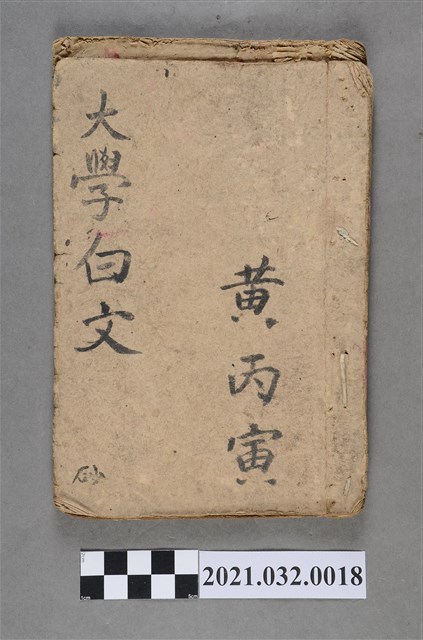 大學白文
黃丙寅
砂
2021.032.0018